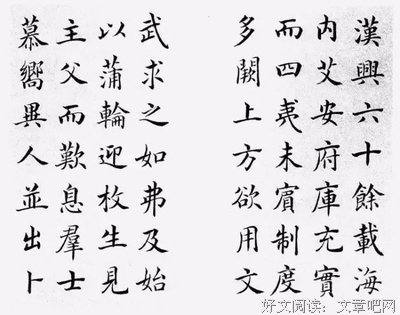 漢興六十餘載海
内艾安府庫充實
而四夷未賓制度
多闕上方欲用文
武求之如弗及始
以蒲輪迎枚生見
主父而歎息羣士
慕嚮異人並出卜
好文阅读：文章吧网